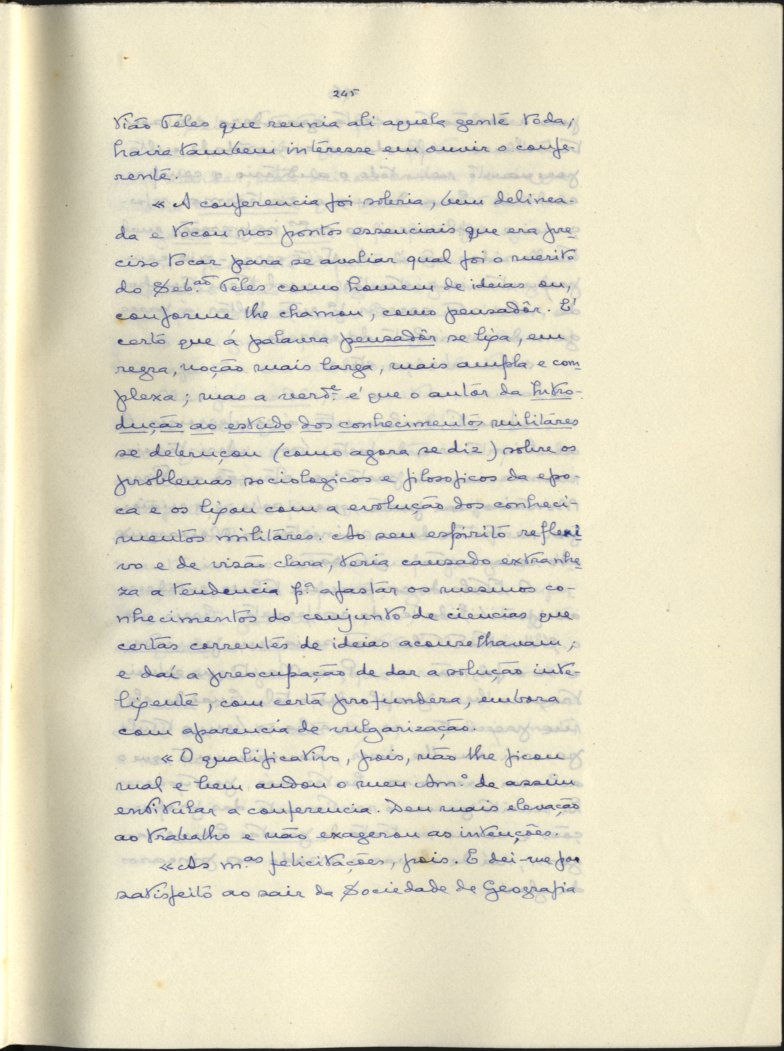 245
tião Teles que reunia ali aquela gente toda,
havia tambem interesse em ouvir o confe-
rente.
« A conferencia foi sobria, bem delinea-
da e tocou nos pontos essenciais que era pre-
ciso tocar para se avaliar qual foi o merito
do Seb.ão Teles como homem de ideias ou,
conforme lhe chamou, como pensadôr. É
certo que á palavra pensadôr se liga, em
regra, noção mais larga, mais ampla e com-
plexa; mas a verd.e é que o autôr da Intro-
dução ao estudo dos conhecimentos militares
se debruçou (como agora se diz) sobre os
problemas sociologicos e filosoficos da epo-
ca e os ligou com a evolução dos conheci-
mentos militares. Ao seu espirito reflexi
vo e de visão clara, teria causado extranhe-
za a tendencia p.a afastar os mesmos co-
nhecimentos do conjunto de ciencias que
certas correntes de ideias aconselhavam;
e daí a preocupação de dar a solução inte-
ligente, com certa profundeza, embora
com aparencia de vulgarização.
« O qualificativo, pois, não lhe ficou
mal e bem andou o meu Am.o de assim
entitular a conferencia. Deu mais elevação
ao trabalho e não exagerou as intenções.
« As m.as felicitações, pois. E dei-me por
satisfeito ao sair da Sociedade de Geografia